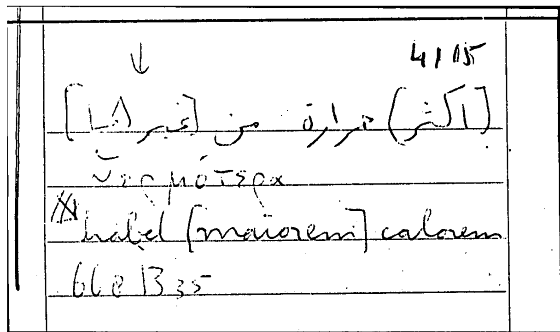 ↓
[اكثر) حرارة من [غيرها]
θερμότερα
habet [maiorem] calorem
668 B 35